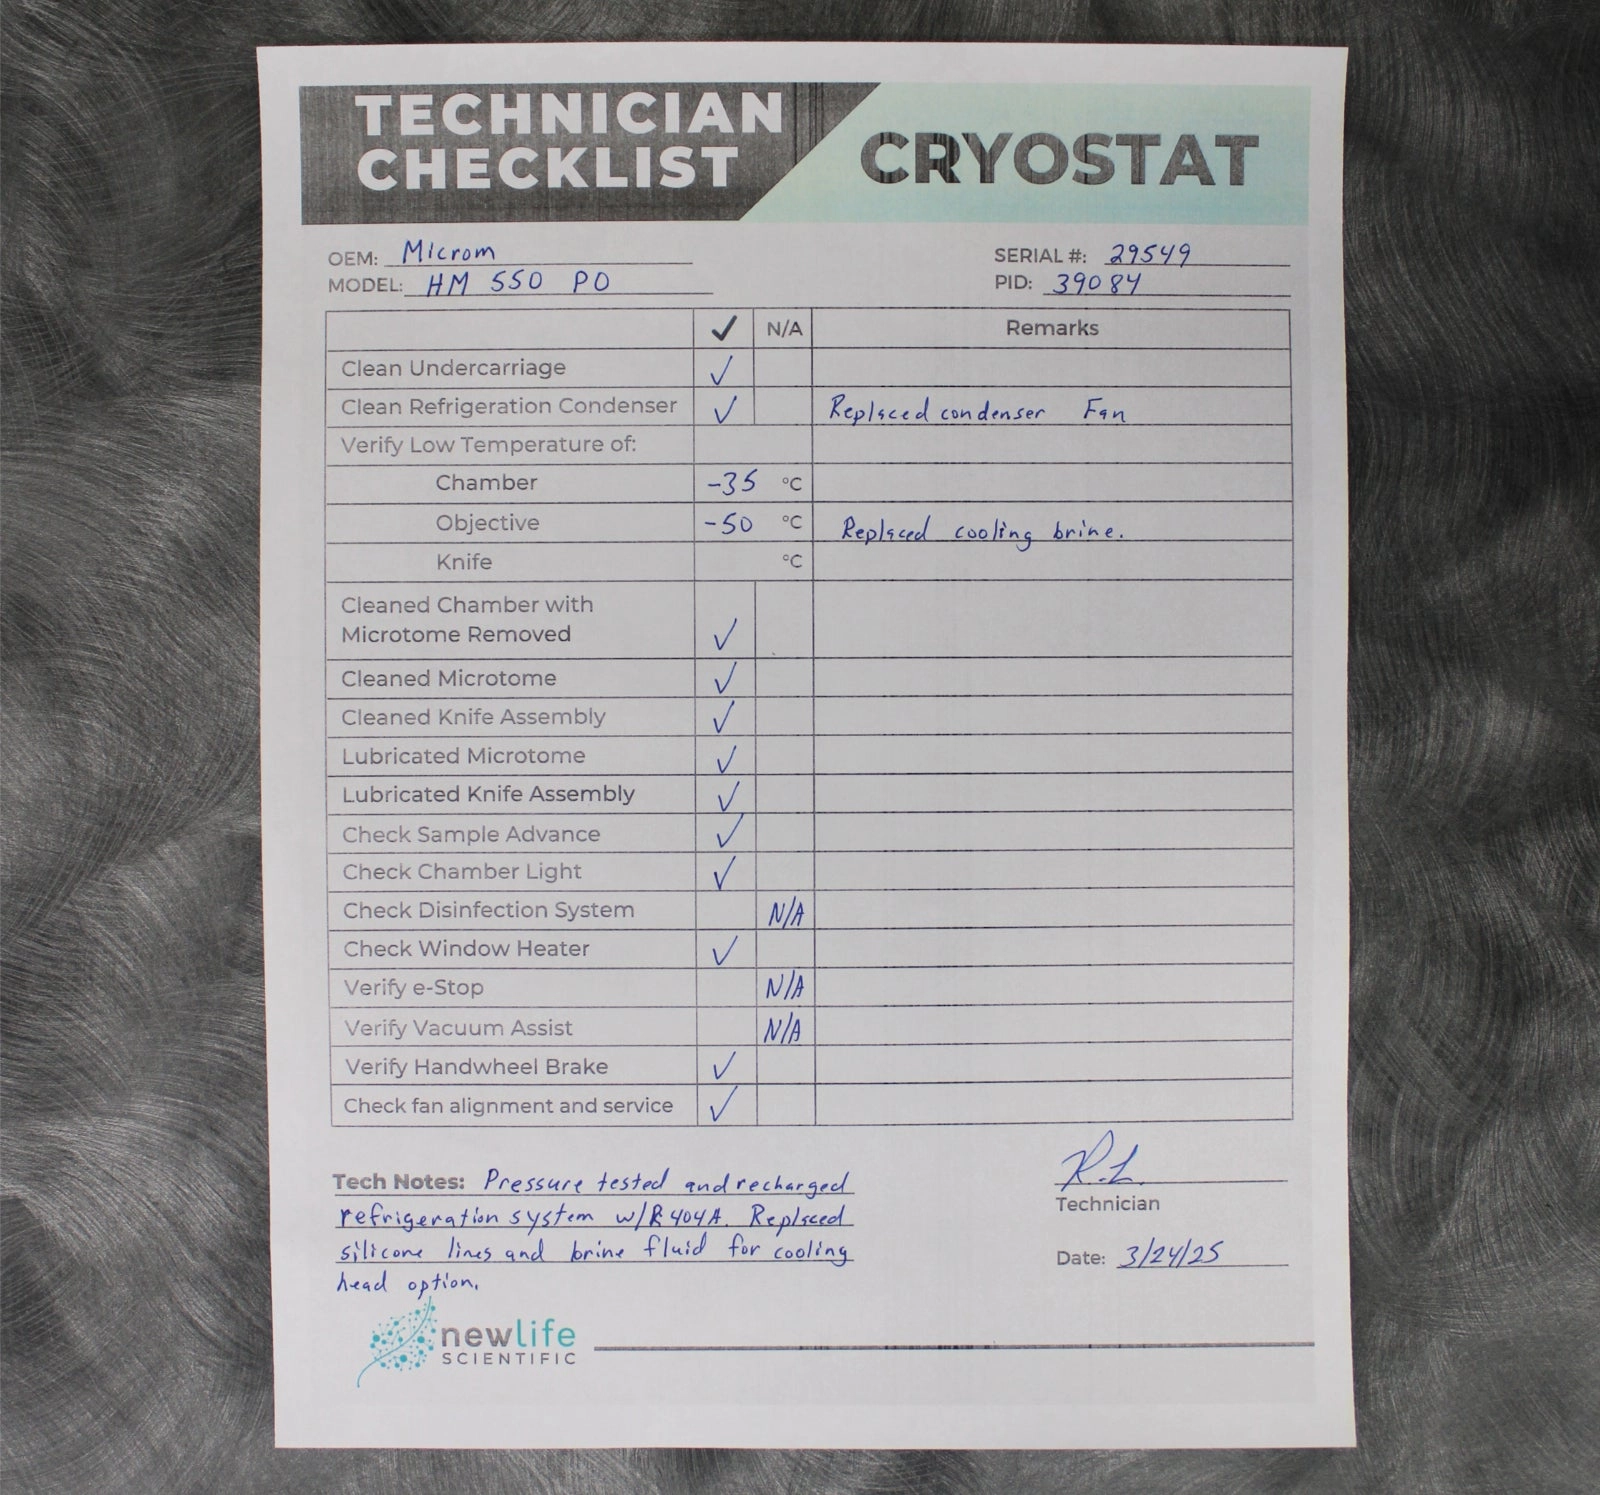 TECHNICIAN
CHECKLIST
CRYOSTAT
OEM: Microm
SERIAL #: 29549
MODEL: HM 550 PO
PID: 39084
✓ N/A Remarks
Clean Undercarriage ✓
Clean Refrigeration Condenser ✓ Replaced condenser Fan
Verify Low Temperature of:
Chamber -35 °C
Objective -50 °C Replaced cooling brine.
Knife °C
Cleaned Chamber with
Microtome Removed ✓
Cleaned Microtome ✓
Cleaned Knife Assembly ✓
Lubricated Microtome ✓
Lubricated Knife Assembly ✓
Check Sample Advance ✓
Check Chamber Light ✓
Check Disinfection System N/A
Check Window Heater ✓
Verify e-Stop N/A
Verify Vacuum Assist N/A
Verify Handwheel Brake ✓
Check fan alignment and service ✓
Tech Notes: Pressure tested and recharged
refrigeration system w/R404A. Replaced
silicone lines and brine fluid for cooling
head option.
R.L.
Technician
Date: 3/24/25
newlife
SCIENTIFIC